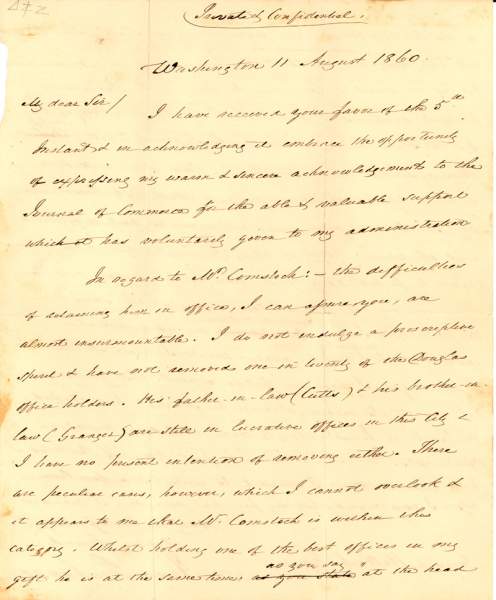 Private & Confidential.
Washington 11 August 1860.
My dear Sir/
I have received your favor of the 5th
Instant & in acknowledging it embrace the opportunity
of expressing my warm & sincere acknowledgements to the
Journal of Commerce for the able & valuable support
which it has voluntarily given to my administration
In regard to Mr. Comstock: – the difficulties
of retaining him in office, I can assure you, are
almost insurmountable. I do not indulge a proscriptive
spirit & have not removed one in twenty of the Douglas
office holders. His father-in-law (Cutts) & his brother-in-
law (Granger) are still in lucrative offices in this City &
I have no present intention of removing either. There
are peculiar cases, however, which I cannot overlook &
it appears to me that Mr. Comstock is within this
category. Whilst holding one of the best offices in my
as you say
gift he is at the same time, as you state "at the head